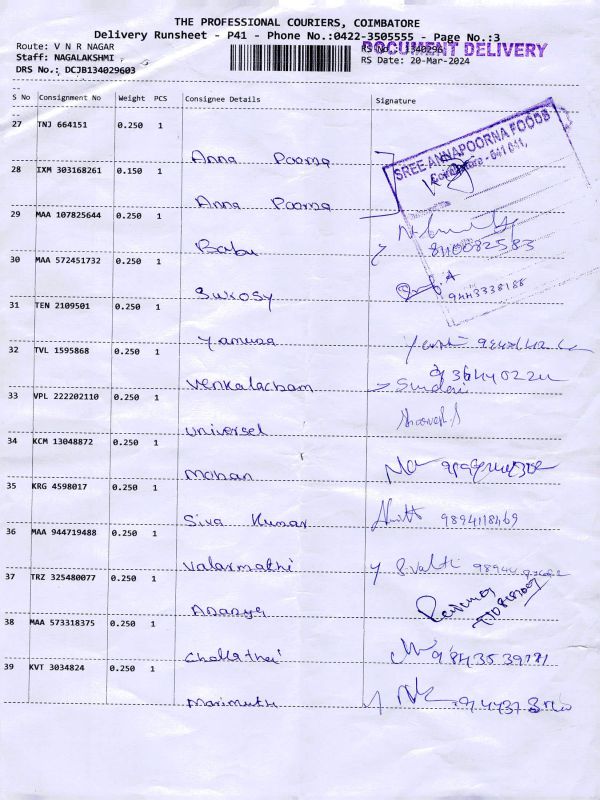 THE PROFESSIONAL COURIERS, COIMBATORE
Delivery Runsheet - P41 - Phone No.:0422-3505555 - Page No.:3
Route: V N R NAGAR
RS No. 1340296
DOCUMENT DELIVERY
Staff: NAGALAKSHMI
RS Date: 20-Mar-2024
DRS No.: DCJB134029603
S No Consignment No Weight PCS Consignee Details Signature
27 TNJ 664151 0.250 1
Anna Poorna
SREE ANNAPOORNA FOODS
Coimbatore - 641 041,
28 IXM 303168261 0.150 1
Anna Poorna
29 MAA 107825644 0.250 1
Babu 8110082583
30 MAA 572451732 0.250 1
Sukosy 9443338188
31 TEN 2109501 0.250 1
Yamuna
32 TVL 1595868 0.250 1
Venkalacham Sundari
33 VPL 222202110 0.250 1
Universel
34 KCM 13048872 0.250 1
Mohan
35 KRG 4598017 0.250 1
Siva Kumar 9894118469
36 MAA 944719488 0.250 1
Valarmathi S. Valli
37 TRZ 325480077 0.250 1
Ananya
38 MAA 573318375 0.250 1
Chellathai 9843539171
39 KVT 3034824 0.250 1
Marimuth